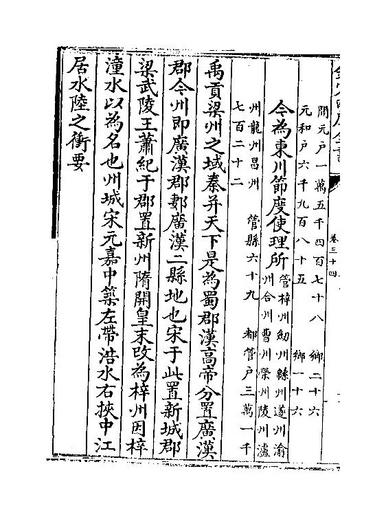 卷三十四
開元户一萬五千四百七十八 鄉二十六
元和户六千九百八十五 鄉一十六
今為東川節度使理所 管梓州劍州緜州遂州渝
州合州普州榮州陵州瀘
州龍州昌州 管縣六十九 都管户三萬一千
七百二十二
禹貢梁州之域秦并天下是為蜀郡漢高帝分置廣漢
郡今州即廣漢郡郪廣漢二縣地也宋于此置新城郡
梁武陵王蕭紀于郡置新州隋開皇末改為梓州因梓
潼水以為名也州城宋元嘉中築左帶涪水右挾中江
居水陸之衝要